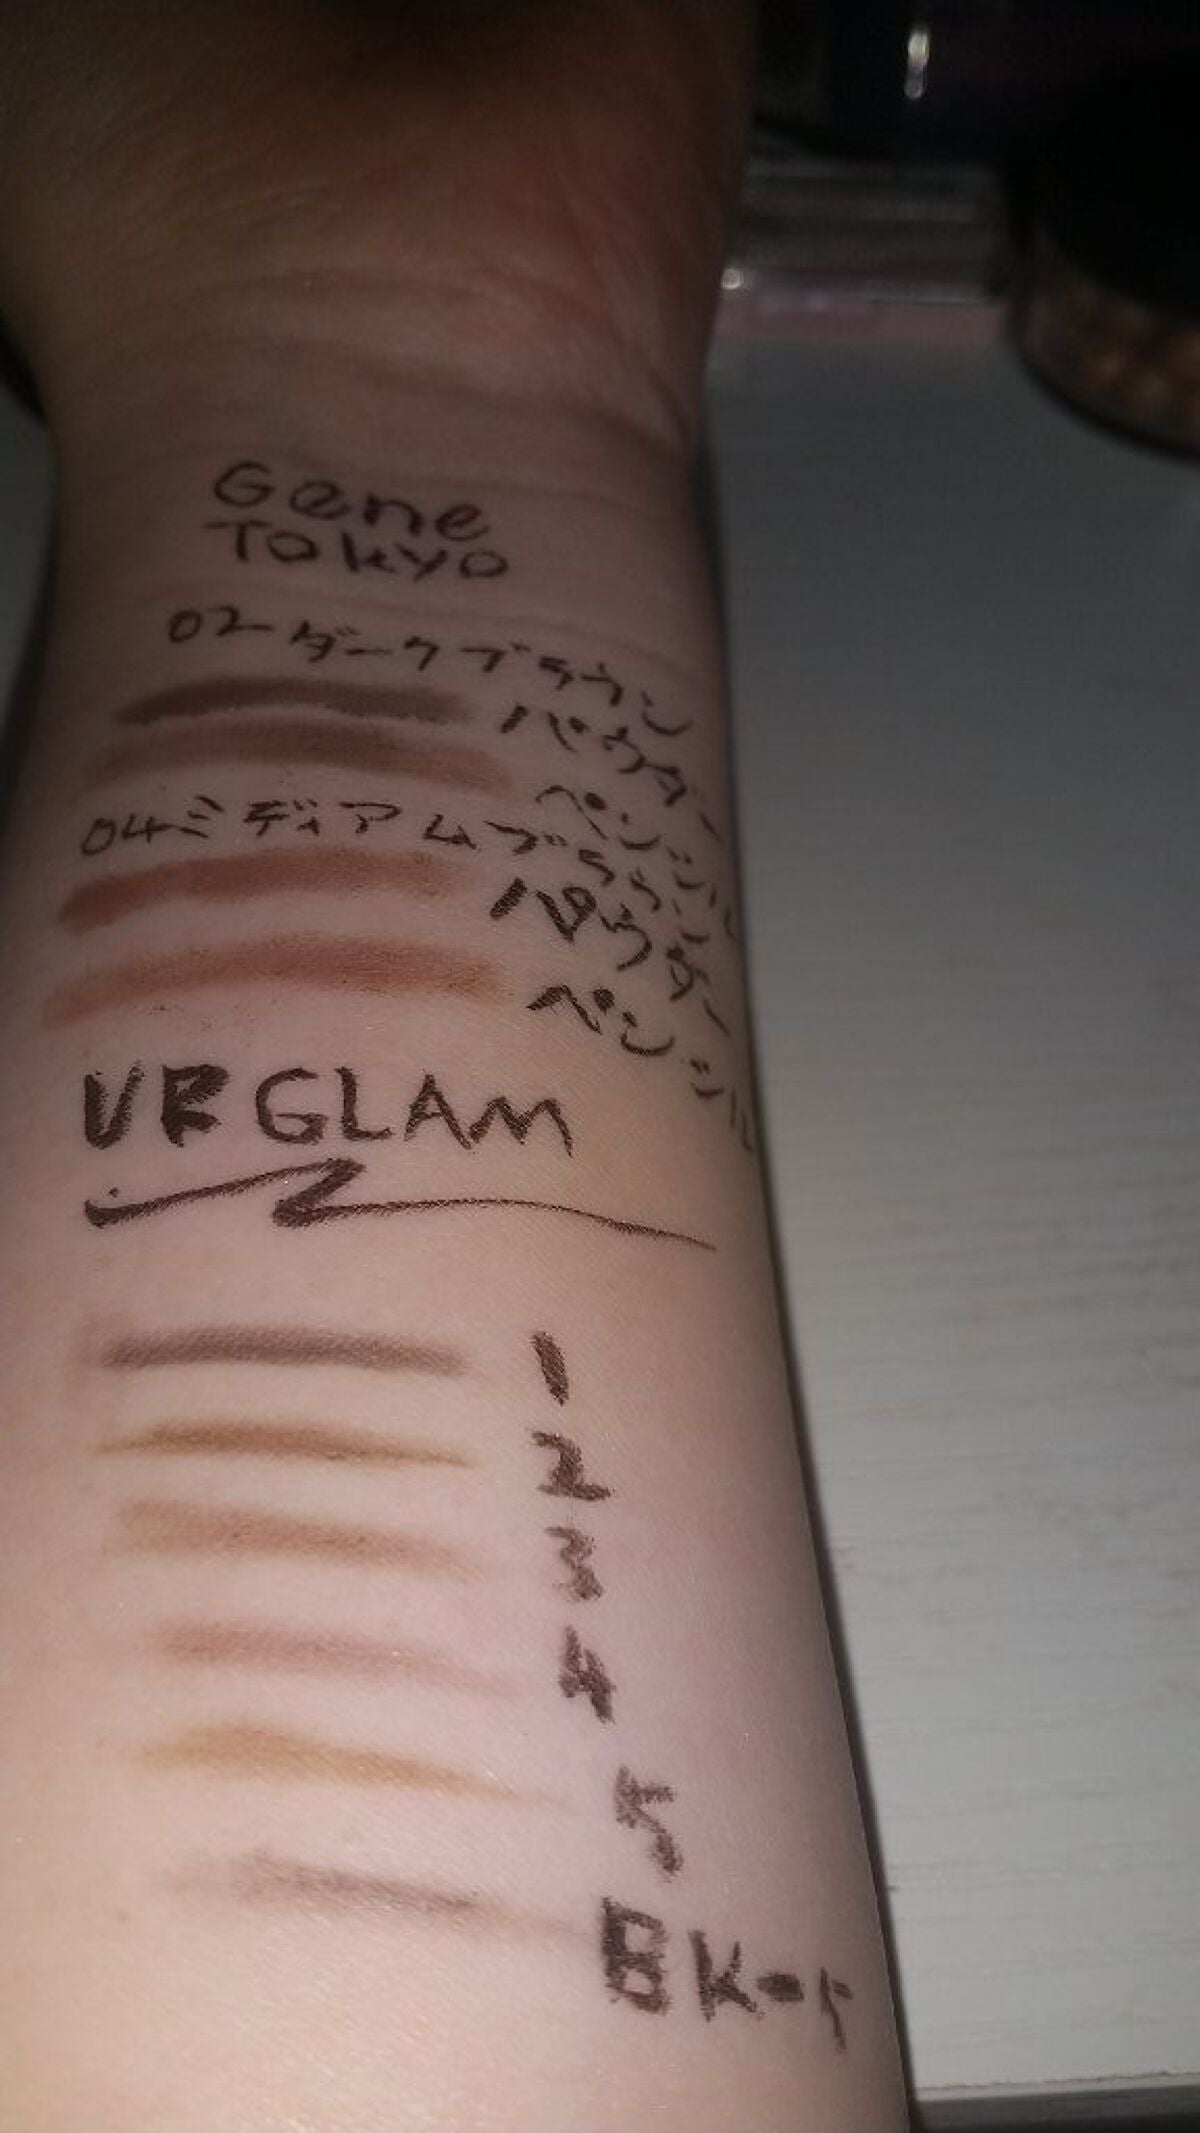 Gene
TOkyo
02ダークブラウン
パウダー
ペンシル
04ミディアムブラウン
パウダー
ペンシル
URGLAM
1
2
3
4
5
BK-1